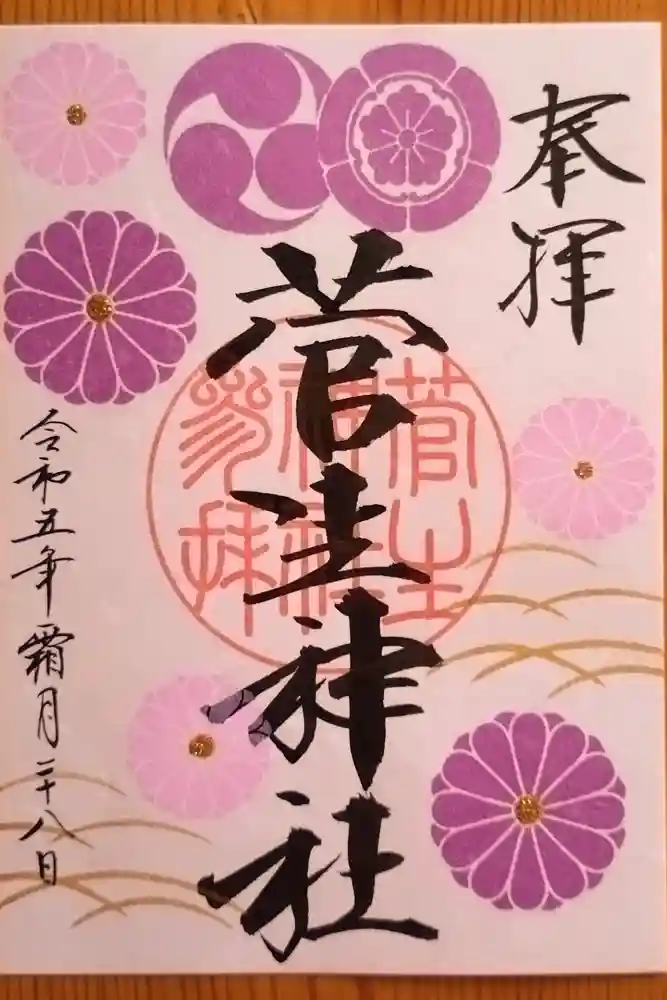 奉拝
菅生神社
令和五年霜月二十八日
菅生
神社
參拝